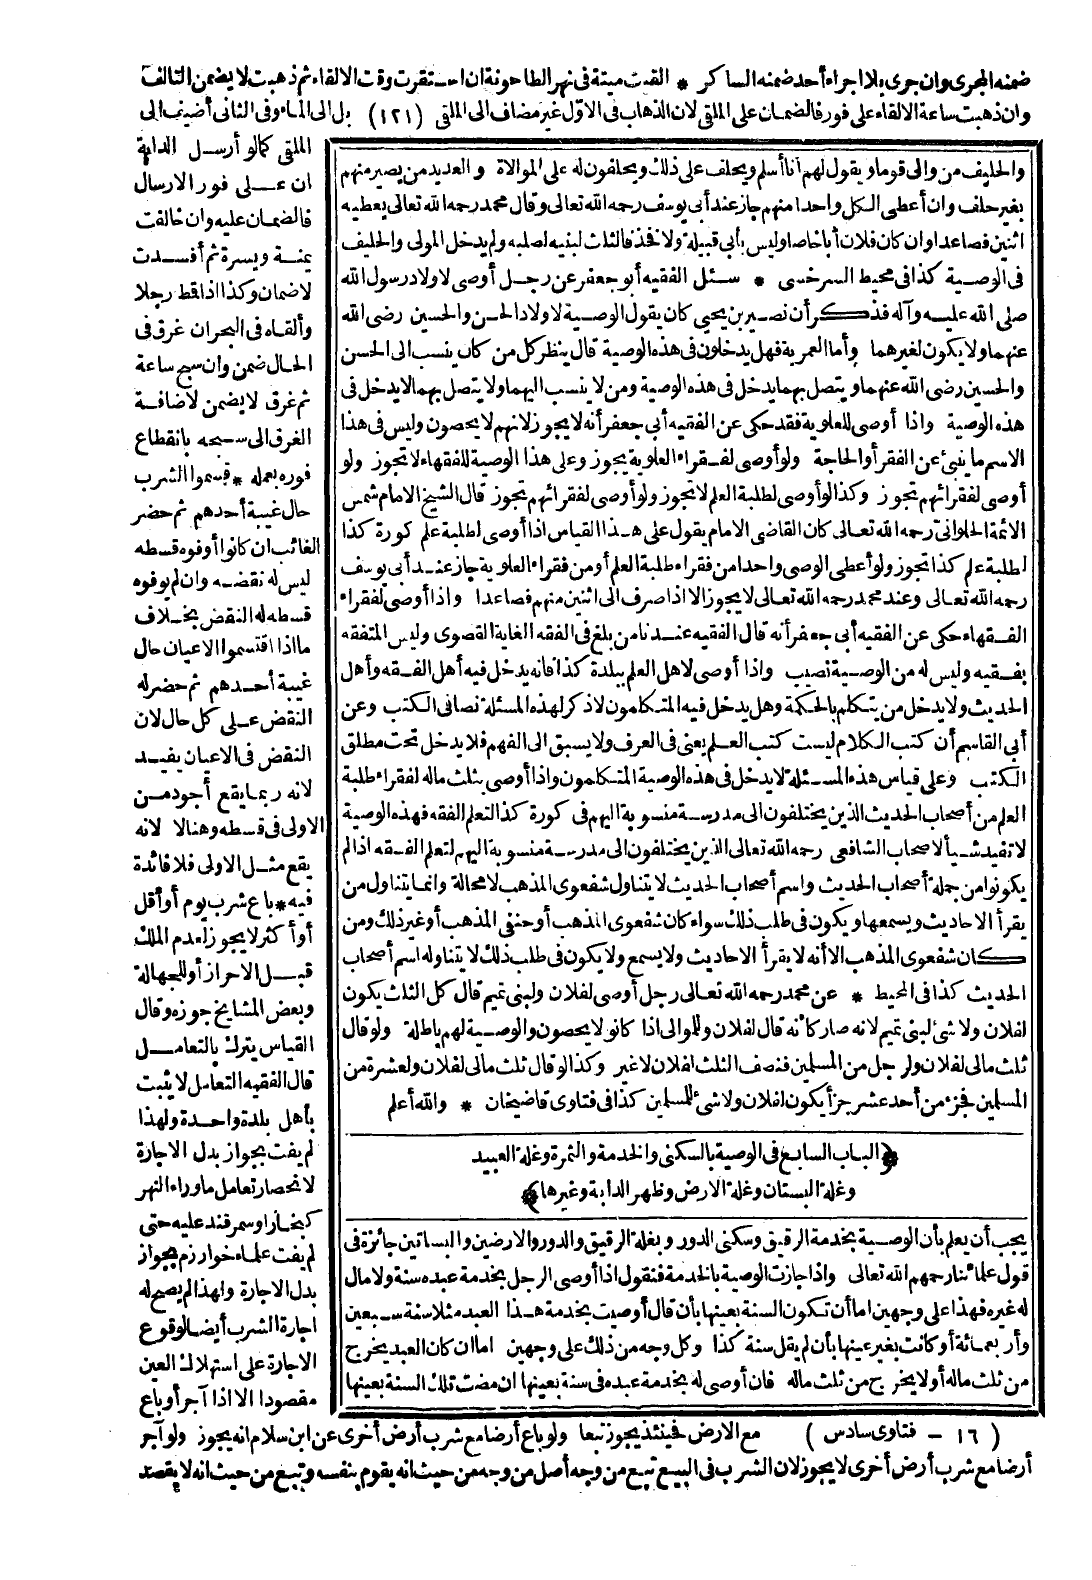 ضمنه المجرى وان جرى بلا اجراء أحد ضمنه الساكر * القيت ميتة في نهر الطاحونة ان استقرت وقت الالقاء ثم ذهبت لا يضمن التالف
وان ذهبت ساعة الالقاء على فور فالضمان على الملقى لان الذهاب في الاول غير مضاف الى الملقى (١٢١) بل الى الماء وفي الثاني أضيف الى
الملقى كما لو أرسل الدابة
ان على فور الارسال
فالضمان عليه وان خالفت
يمنة ويسرة ثم أفسدت
لا ضمان وكذا اذا قط رجلا
وألقاه في البحر ان غرق في
الحال ضمن وان سبح ساعة
ثم غرق لا يضمن لاضافة
الغرق الى سبحه بانقطاع
فوره بعمله * قسموا الشرب
حال غيبة أحدهم ثم حضر
الغائب ان كانوا أوفوه قسطه
ليس له نقضه وان لم يوفوه
قسطه له النقض بخلاف
ما اذا اقتسموا الاعيان حال
غيبة أحدهم ثم حضر له
النقض على كل حال لان
النقض في الاعيان يفيد
لانه ربما يقع أجود من
الاولى في قسطه وهنالا لانه
يقع مثل الاولى فلا فائدة
فيه * باع شرب يوم أو أقل
أو أكثر لا يجوز لعدم الملك
قبل الاحراز أو للجهالة
وبعض المشايخ جوزه وقال
القياس يترك بالتعامل
قال الفقيه التعامل لا يثبت
بأهل بلدة واحدة ولهذا
لم يفت بجواز بدل الاجارة
لانحصار تعامل ما وراء النهر
كبخارا وسمرقند عليه حتى
لم يفت علماء خوارزم بجواز
بدل الاجارة ولهذا لم يصح له
اجارة الشرب أيضا لوقوع
الاجارة على استهلاك العين
مقصودا الا اذا آجر أو باع
والحليف من والى قوما ويقول لهم أنا أسلم ويحلف على ذلك ويحلفون له على الموالاة والعديد من يصير منهم
بغير حلف وان أعطى الكل واحدا منهم جاز عند أبي يوسف رحمه الله تعالى وقال محمد رحمه الله تعالى يعطيه
اثنين فصاعدا وان كان فلان أبا خاصا وليس بأبي قبيلة ولا فخذ فالثلث لبنيه لصلبه ولم يدخل المولى والحليف
في الوصية كذا في محيط السرخسى * سئل الفقيه أبو جعفر عن رجل أوصى لاولاد رسول الله
صلى الله عليه وآله فذكر أن نصير بن يحيى كان يقول الوصية لاولاد الحسن والحسين رضى الله
عنهما ولا يكون لغيرهما وأما العمرية فهل يدخلون في هذه الوصية قال ينظر كل من كان ينسب الى الحسن
والحسين رضى الله عنهما ويتصل بهما يدخل في هذه الوصية ومن لا ينسب اليهما ولا يتصل بهما لا يدخل في
هذه الوصية واذا أوصى للعلوية فقد حكى عن الفقيه أبي جعفر أنه لا يجوز لانهم لا يحصون وليس في هذا
الاسم ما ينبئ عن الفقر أو الحاجة ولو أوصى لفقراء العلوية يجوز وعلى هذا الوصية للفقهاء لا تجوز ولو
أوصى لفقرائهم تجوز وكذا لو أوصى لطلبة العلم لا يجوز ولو أوصى لفقرائهم تجوز قال الشيخ الامام شمس
الائمة الحلواني رحمه الله تعالى كان القاضى الامام يقول على هذا القياس اذا أوصى لطلبة علم كورة كذا
لطلبة علم كذا تجوز ولو أعطى الوصى واحدا من فقراء طلبة العلم أو من فقراء العلوية جاز عند أبي يوسف
رحمه الله تعالى وعند محمد رحمه الله تعالى لا يجوز الا اذا صرف الى اثنين منهم فصاعدا واذا أوصى لفقراء
الفقهاء حكى عن الفقيه أبي جعفر أنه قال الفقيه عندنا من بلغ في الفقه الغاية القصوى وليس المتفقه
بفقيه وليس له من الوصية نصيب واذا أوصى لاهل العلم ببلدة كذا فانه يدخل فيه أهل الفقه وأهل
الحديث ولا يدخل من يتكلم بالحكمة وهل يدخل فيه المتكلمون لا ذكر لهذه المسئلة نصا في الكتب وعن
أبي القاسم أن كتب الكلام ليست كتب العلم يعني في العرف ولا يسبق الى الفهم فلا يدخل تحت مطلق
الكتب وعلى قياس هذه المسئلة لا يدخل في هذه الوصية المتكلمون واذا أوصى بثلث ماله لفقراء طلبة
العلم من أصحاب الحديث الذين يختلفون الى مدرسة منسوبة اليهم في كورة كذا لتعلم الفقه فهذه الوصية
لا تفيد شيأ لاصحاب الشافعي رحمه الله تعالى الذين يختلفون الى مدرسة منسوبة اليهم لتعلم الفقه اذا لم
يكونوا من جملة أصحاب الحديث واسم أصحاب الحديث لا يتناول شفعوى المذهب لا محالة وانما يتناول من
يقرأ الاحاديث ويسمعها ويكون في طلب ذلك سواء كان شفعوى المذهب أو حنفى المذهب أو غير ذلك ومن
كان شفعوى المذهب الا أنه لا يقرأ الاحاديث ولا يسمع ولا يكون في طلب ذلك لا يتناوله اسم أصحاب
الحديث كذا في المحيط * عن محمد رحمه الله تعالى رجل أوصى لفلان ولبني تميم قال كل الثلث يكون
لفلان ولا شئ لبني تميم لانه صار كأنه قال لفلان وللموالى اذا كانوا لا يحصون والوصية لهم باطلة ولو قال
ثلث مالى لفلان ولرجل من المسلمين فنصف الثلث لفلان لا غير وكذا لو قال ثلث مالى لفلان ولعشرة من
المسلمين فجزء من أحد عشر جزأ يكون لفلان ولا شئ للمسلمين كذا في فتاوى قاضيخان * والله أعلم
﴿الباب السابع في الوصية بالسكنى والخدمة والثمرة وغلة العبيد
وغلة البستان وغلة الارض وظهر الدابة وغيرها﴾
يجب أن يعلم بأن الوصية بخدمة الرقيق وسكنى الدور وبغلة الرقيق والدور والارضين والبساتين جائزة في
قول علمائنا رحمهم الله تعالى واذا جازت الوصية بالخدمة فنقول اذا أوصى الرجل بخدمة عبده سنة ولا مال
له غيره فهذا على وجهين اما أن تكون السنة بعينها بأن قال أوصيت بخدمة هذا العبد مثلا سنة سبعين
وأربعمائة أو كانت بغير عينها بأن لم يقل سنة كذا وكل وجه من ذلك على وجهين اما ان كان العبد يخرج
من ثلث ماله أو لا يخرج من ثلث ماله فان أوصى له بخدمة عبده في سنة بعينها ان مضت تلك السنة بعينها
(١٦ - فتاوى سادس) مع الارض فحينئذ يجوز تبعا ولو باع أرضا مع شرب أرض أخرى عن ابن سلام انه يجوز ولو آجر
أرضا مع شرب أرض أخرى لا يجوز لان الشرب في البيع تبع من وجه أصل من وجه من حيث انه يقوم بنفسه وتبع من حيث انه لا يقصد